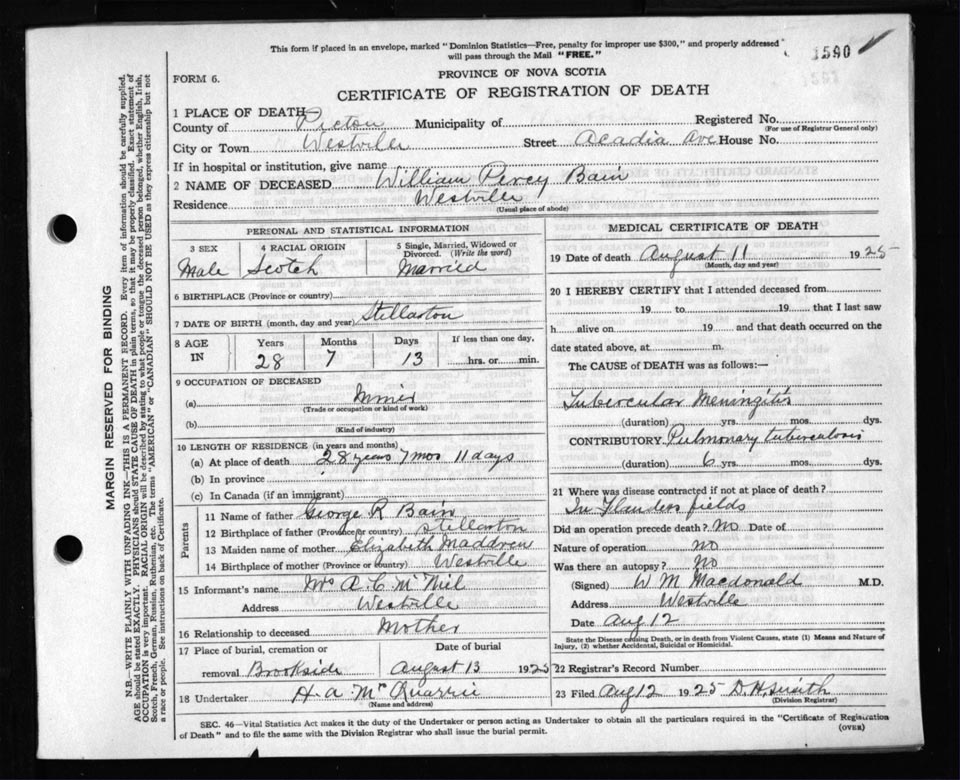 This form if placed in an envelope, marked "Dominion Statistics—Free, penalty for improper use $300," and properly addressed
will pass through the Mail "FREE."
1590
FORM 6.
PROVINCE OF NOVA SCOTIA
CERTIFICATE OF REGISTRATION OF DEATH
1 PLACE OF DEATH
County of Pictou Municipality of Registered No.
(For use of Registrar General only)
City or Town Westville Street Acadia Ave House No.
If in hospital or institution, give name
2 NAME OF DECEASED William Percy Bain
Residence Westville
(Usual place of abode)
PERSONAL AND STATISTICAL INFORMATION
3 SEX 4 RACIAL ORIGIN 5 Single, Married, Widowed or
Divorced. (Write the word)
Male Scotch Married
6 BIRTHPLACE (Province or country)
Stellarton
7 DATE OF BIRTH (month, day and year)
8 AGE IN Years Months Days If less than one day,
28 7 13 hrs. or min.
9 OCCUPATION OF DECEASED
(a) Miner
(Trade or occupation or kind of work)
(b)
(Kind of industry)
10 LENGTH OF RESIDENCE (in years and months)
(a) At place of death 28 years 7 mos 11 days
(b) In province
(c) In Canada (if an immigrant)
Parents
11 Name of father George R Bain
12 Birthplace of father (Province or country) Stellarton
13 Maiden name of mother Elizabeth Maddren
14 Birthplace of mother (Province or country) Westville
15 Informant's name Mrs A. C. McNeil
Address Westville
16 Relationship to deceased Mother
17 Place of burial, cremation or Date of burial
removal Brookside August 13 1925
18 Undertaker H. A. McQuarrie
(Name and address)
MEDICAL CERTIFICATE OF DEATH
19 Date of death August 11 1925
(Month, day and year)
20 I HEREBY CERTIFY that I attended deceased from
19 to 19 that I last saw
h alive on 19 and that death occurred on the
date stated above, at m.
The CAUSE of DEATH was as follows:—
Tubercular Meningitis
(duration) yrs. mos. dys.
CONTRIBUTORY Pulmonary tuberculosis
(duration) 6 yrs. mos. dys.
21 Where was disease contracted if not at place of death?
In Flanders fields
Did an operation precede death? No Date of
Nature of operation no
Was there an autopsy? No
(Signed) W M Macdonald M.D.
Address Westville
Date Aug 12
State the Disease causing Death, or in death from Violent Causes, state (1) Means and Nature of
Injury, (2) whether Accidental, Suicidal or Homicidal.
22 Registrar's Record Number
23 Filed Aug 12 1925 D. H. Smith
(Division Registrar)
SEC. 46—Vital Statistics Act makes it the duty of the Undertaker or person acting as Undertaker to obtain all the particulars required in the "Certificate of Registration
of Death" and to file the same with the Division Registrar who shall issue the burial permit.
(OVER)
MARGIN RESERVED FOR BINDING
N.B.—WRITE PLAINLY WITH UNFADING INK—THIS IS A PERMANENT RECORD. Every item of information should be carefully supplied.
AGE should be stated EXACTLY. PHYSICIANS should STATE CAUSE OF DEATH in plain terms, so that it may be properly classified. Exact statement of
OCCUPATION is very important. RACIAL ORIGIN will be described by stating to what people or tongue the deceased person belonged, whether English, Irish,
Scotch, French, German, Russian, Ruthenian, etc. The terms "AMERICAN" or "CANADIAN" SHOULD NOT BE USED as they express citizenship but not
a race or people. See instructions on back of Certificate.